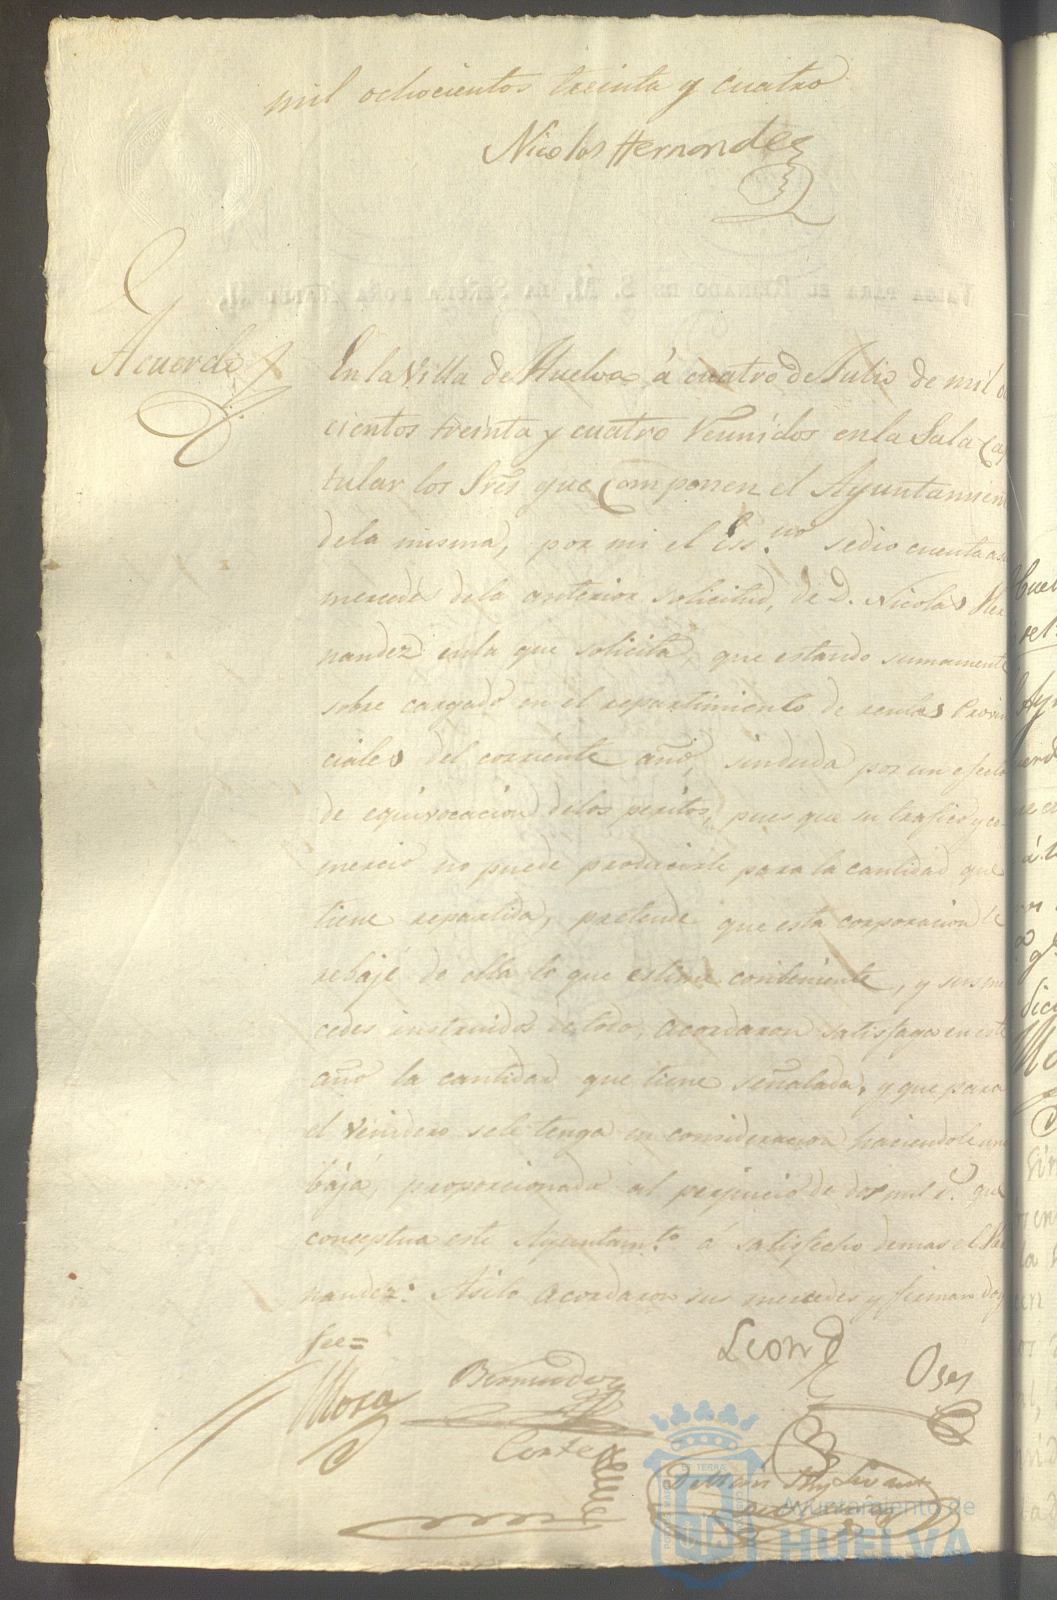 mil ochocientos treinta y cuatro
Nicolas Hernandez
Acuerdo
En la Villa de Huelva á cuatro de Julio de mil
cientos treinta y cuatro reunidos en la Sala Ca
tular los Sres que componen el Ayuntamien
dela misma, por mi el Ess.no sedio cuenta a su
mercedes dela anterior solicitud, de D. Nicolas Her
nandez enla que solicita, que estando sumamente
sobre cargado en el repartimiento de rentas Provin
ciales del corriente año, sinduda por un efecto
de equivocacion delos peritos, pues que su trafico y co
mercio no puede producirle para la cantidad que
tiene repartida, pretende que esta corporacion le
rebaje de ella lo que estime conbeniente, y sus mer
cedes instruidos de todo, acordaron satisfaga en este
año la cantidad que tiene señalada, y que para
el venidero sele tenga en consideracion haciendole una
baja, proporcionada al perjuicio de dos mil r.s que
conceptua este Ayuntam.to á satisfecho demas el Her
nandez: Asilo acordaron sus mercedes y firman doy
fee=
Leon
Oses
Mora
Bermudez
Cortes
Ayuntamiento de
HUELVA